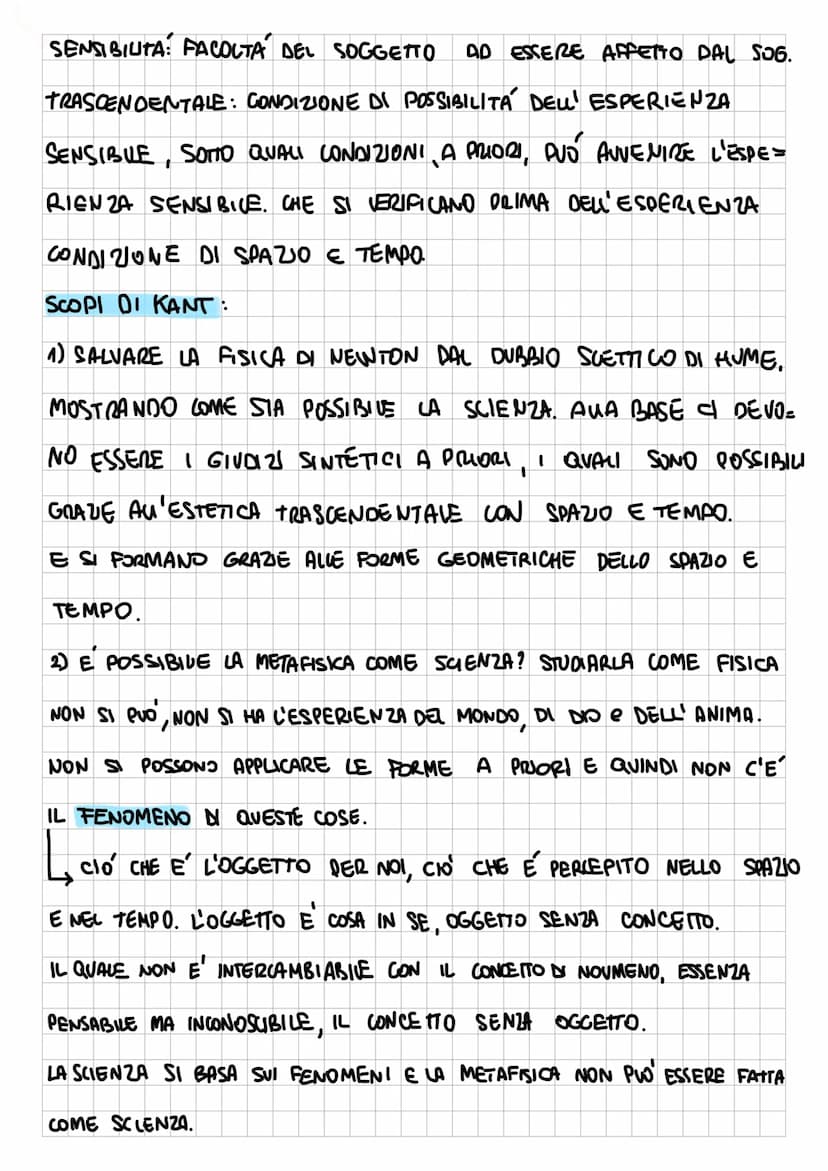 SENSIBILITÀ: FACOLTÀ DEL SOGGETTO AD ESSERE AFFETTO DAL SOG.
TRASCENDENTALE: CONDIZIONE DI POSSIBILITÀ DELL'ESPERIENZA
SENSIBILE, SOTTO QUALI CONDIZIONI, A PRIORI, PUÒ AVVENIRE L'ESPE=
RIENZA SENSIBILE. CHE SI VERIFICANO PRIMA DELL'ESPERIENZA
CONDIZIONE DI SPAZIO E TEMPO
SCOPI DI KANT:
1) SALVARE LA FISICA DI NEWTON DAL DUBBIO SCETTICO DI HUME,
MOSTRANDO COME SIA POSSIBILE LA SCIENZA. ALLA BASE CI DEVO=
NO ESSERE I GIUDIZI SINTETICI A PRIORI, I QUALI SONO POSSIBILI
GRAZIE ALL'ESTETICA TRASCENDENTALE CON SPAZIO E TEMPO.
E SI FORMANO GRAZIE ALLE FORME GEOMETRICHE DELLO SPAZIO E
TEMPO.
2) È POSSIBILE LA METAFISICA COME SCIENZA? STUDIARLA COME FISICA
NON SI PUÒ, NON SI HA L'ESPERIENZA DEL MONDO, DI DIO e DELL'ANIMA.
NON SI POSSONO APPLICARE LE FORME A PRIORI E QUINDI NON C'È
IL FENOMENO DI QUESTE COSE.
↳ CIÒ CHE È L'OGGETTO PER NOI, CIÒ CHE È PERCEPITO NELLO SPAZIO
E NEL TEMPO. L'OGGETTO È COSA IN SE, OGGETTO SENZA CONCETTO.
IL QUALE NON È INTERCAMBIABILE CON IL CONCETTO DI NOUMENO, ESSENZA
PENSABILE MA INCONOSCIBILE, IL CONCETTO SENZA OGGETTO.
LA SCIENZA SI BASA SUI FENOMENI E LA METAFISICA NON PUÒ ESSERE FATTA
COME SCIENZA.